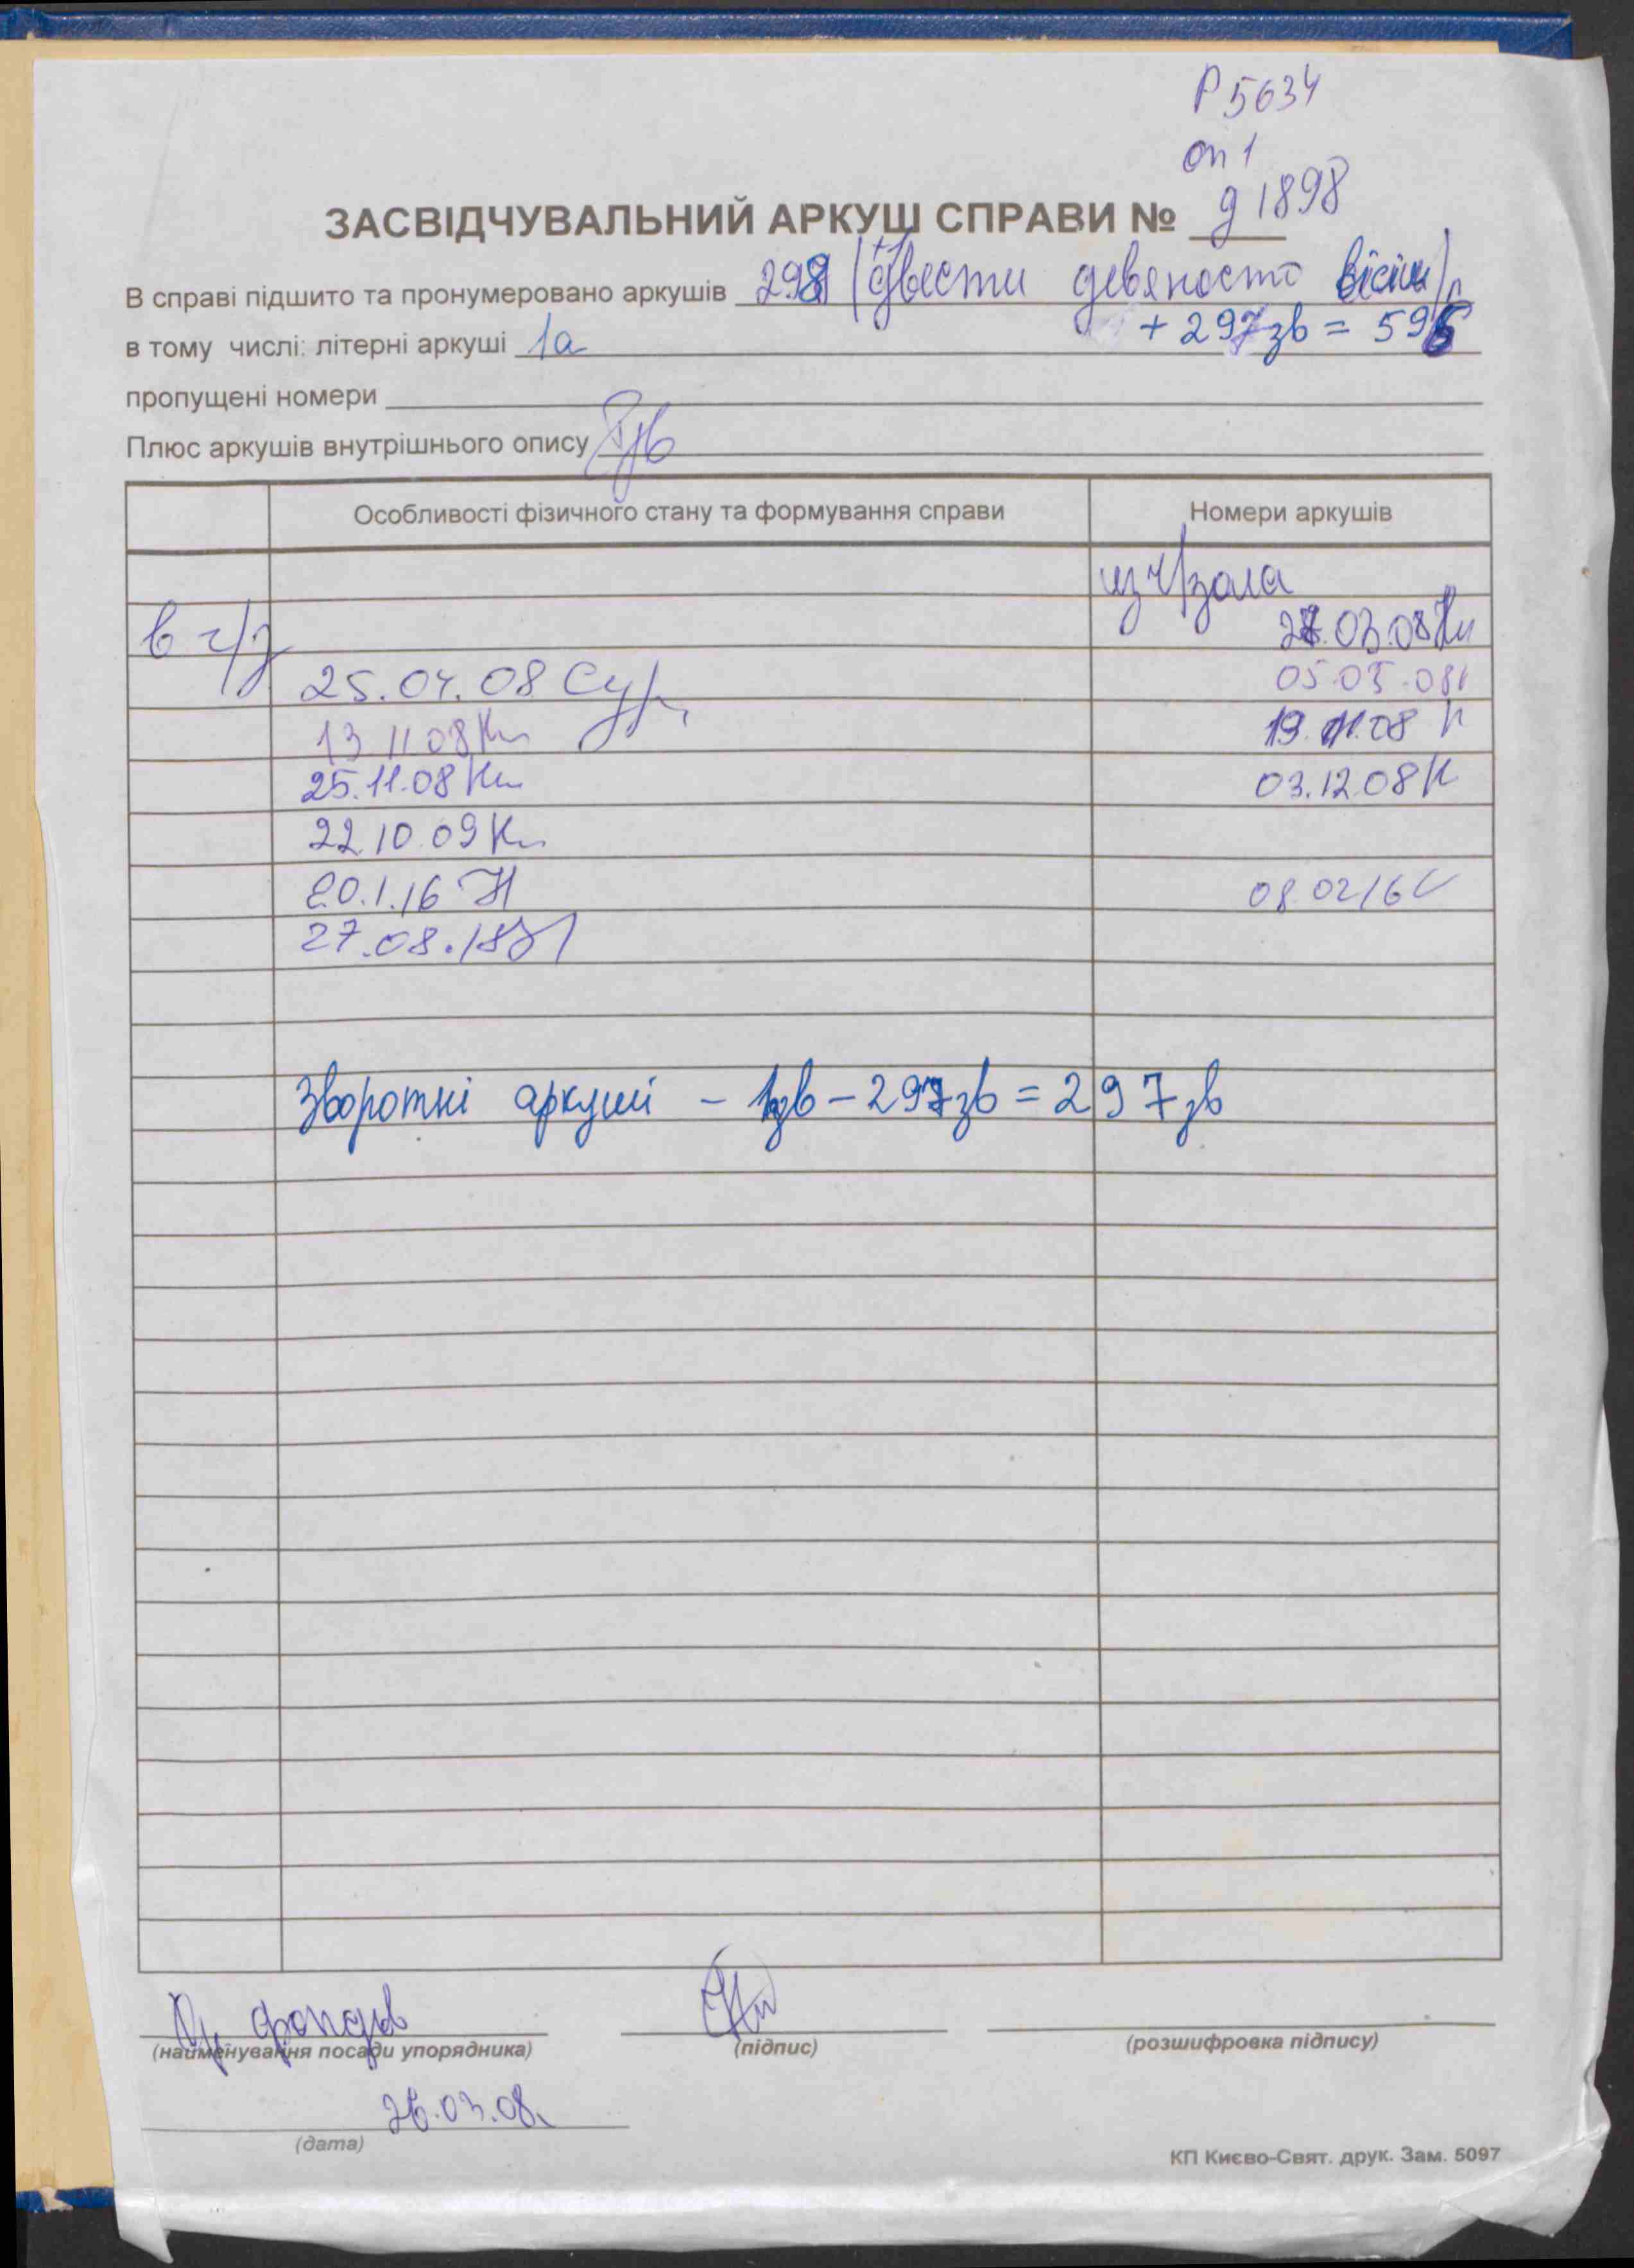 Р 5634
оп 1
ЗАСВІДЧУВАЛЬНИЙ АРКУШ СПРАВИ № д 1898
В справі підшито та пронумеровано аркушів 298 (двести девяносто вісім)
+ 297 зв = 595
в тому числі: літерні аркуші 1а
пропущені номери
Плюс аркушів внутрішнього опису
Особливості фізичного стану та формування справи Номери аркушів
из ч/зала
в ч/з 27.03.08
25.04.08 05.05.08
13 11 08 Кн 19.11.08 К
25.11.08 Кн 03.12.08 К
22.10.09 Кн
20.1.16 08.02 16
27.08.18
Зворотні аркуші – 1зв – 297зв = 297 зв
фондів
(найменування посади упорядника) (підпис) (розшифровка підпису)
26.03.08.
(дата)
КП Києво-Свят. друк. Зам. 5097